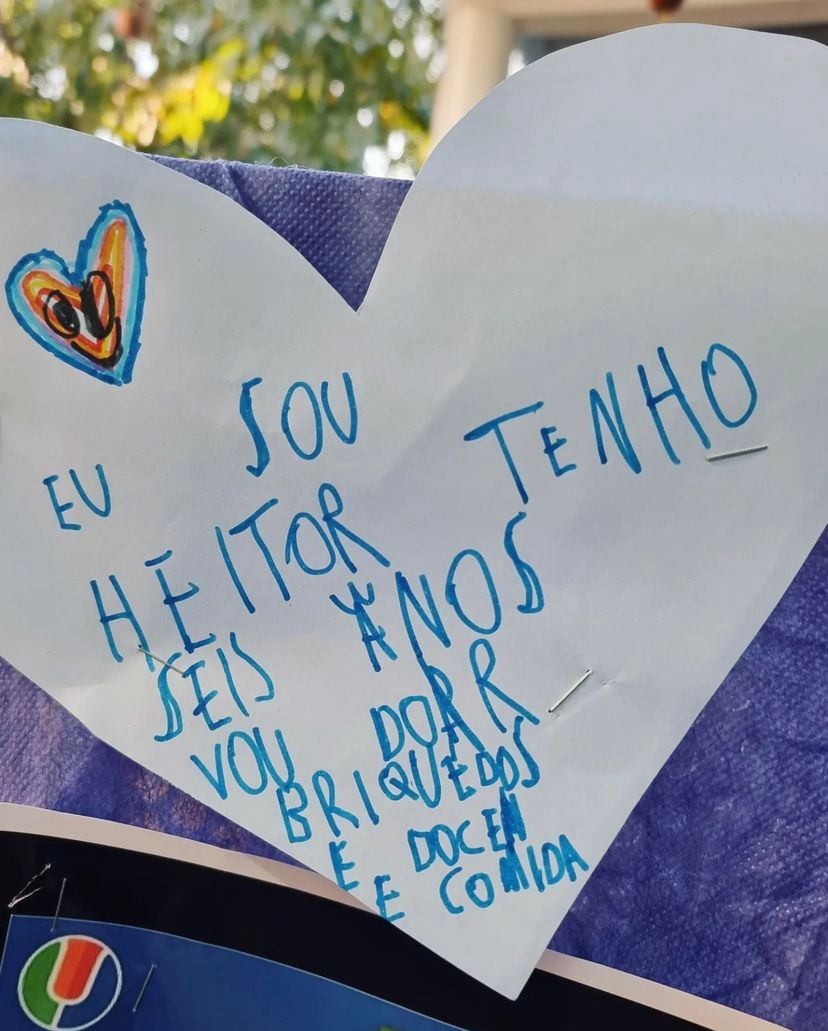 EU SOU
HEITOR TENHO
SEIS ANOS
VOU DOAR
BRIQUEDOS
E DOCEN
E COMIDA